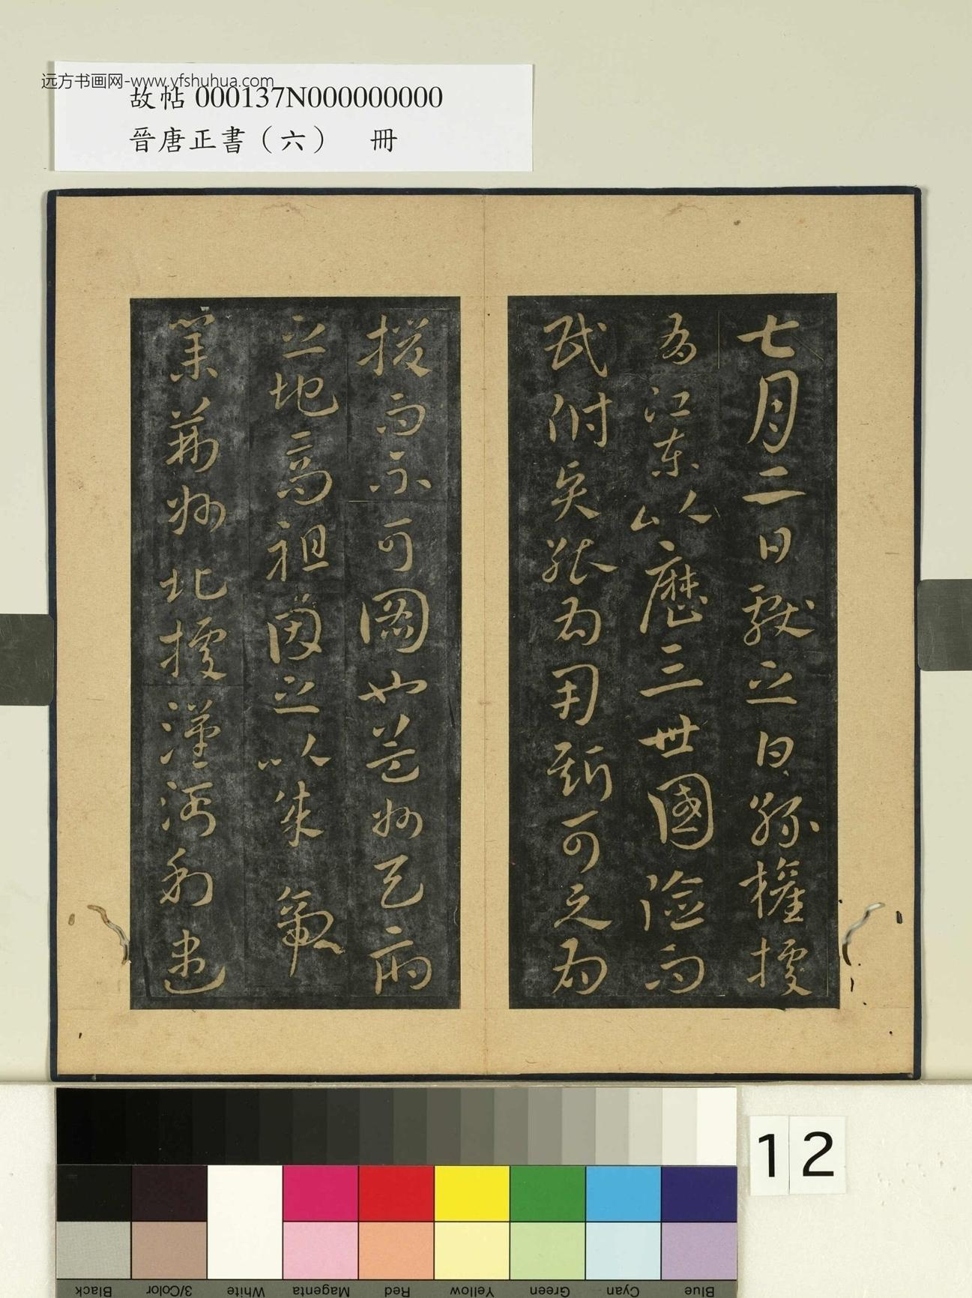 远方书画网-www.yfshuhua.com
故帖 000137N000000000
晉唐正書（六） 冊
七月二日獻之白孫權據
江東以歷三世國險而
民附能為用斯可為
援而不可圖也益州天府
之地高祖因之以成帝
業荊州北據漢沔利盡
12
Black
3/Color
White
Magenta
Red
Yellow
Green
Cyan
Blue